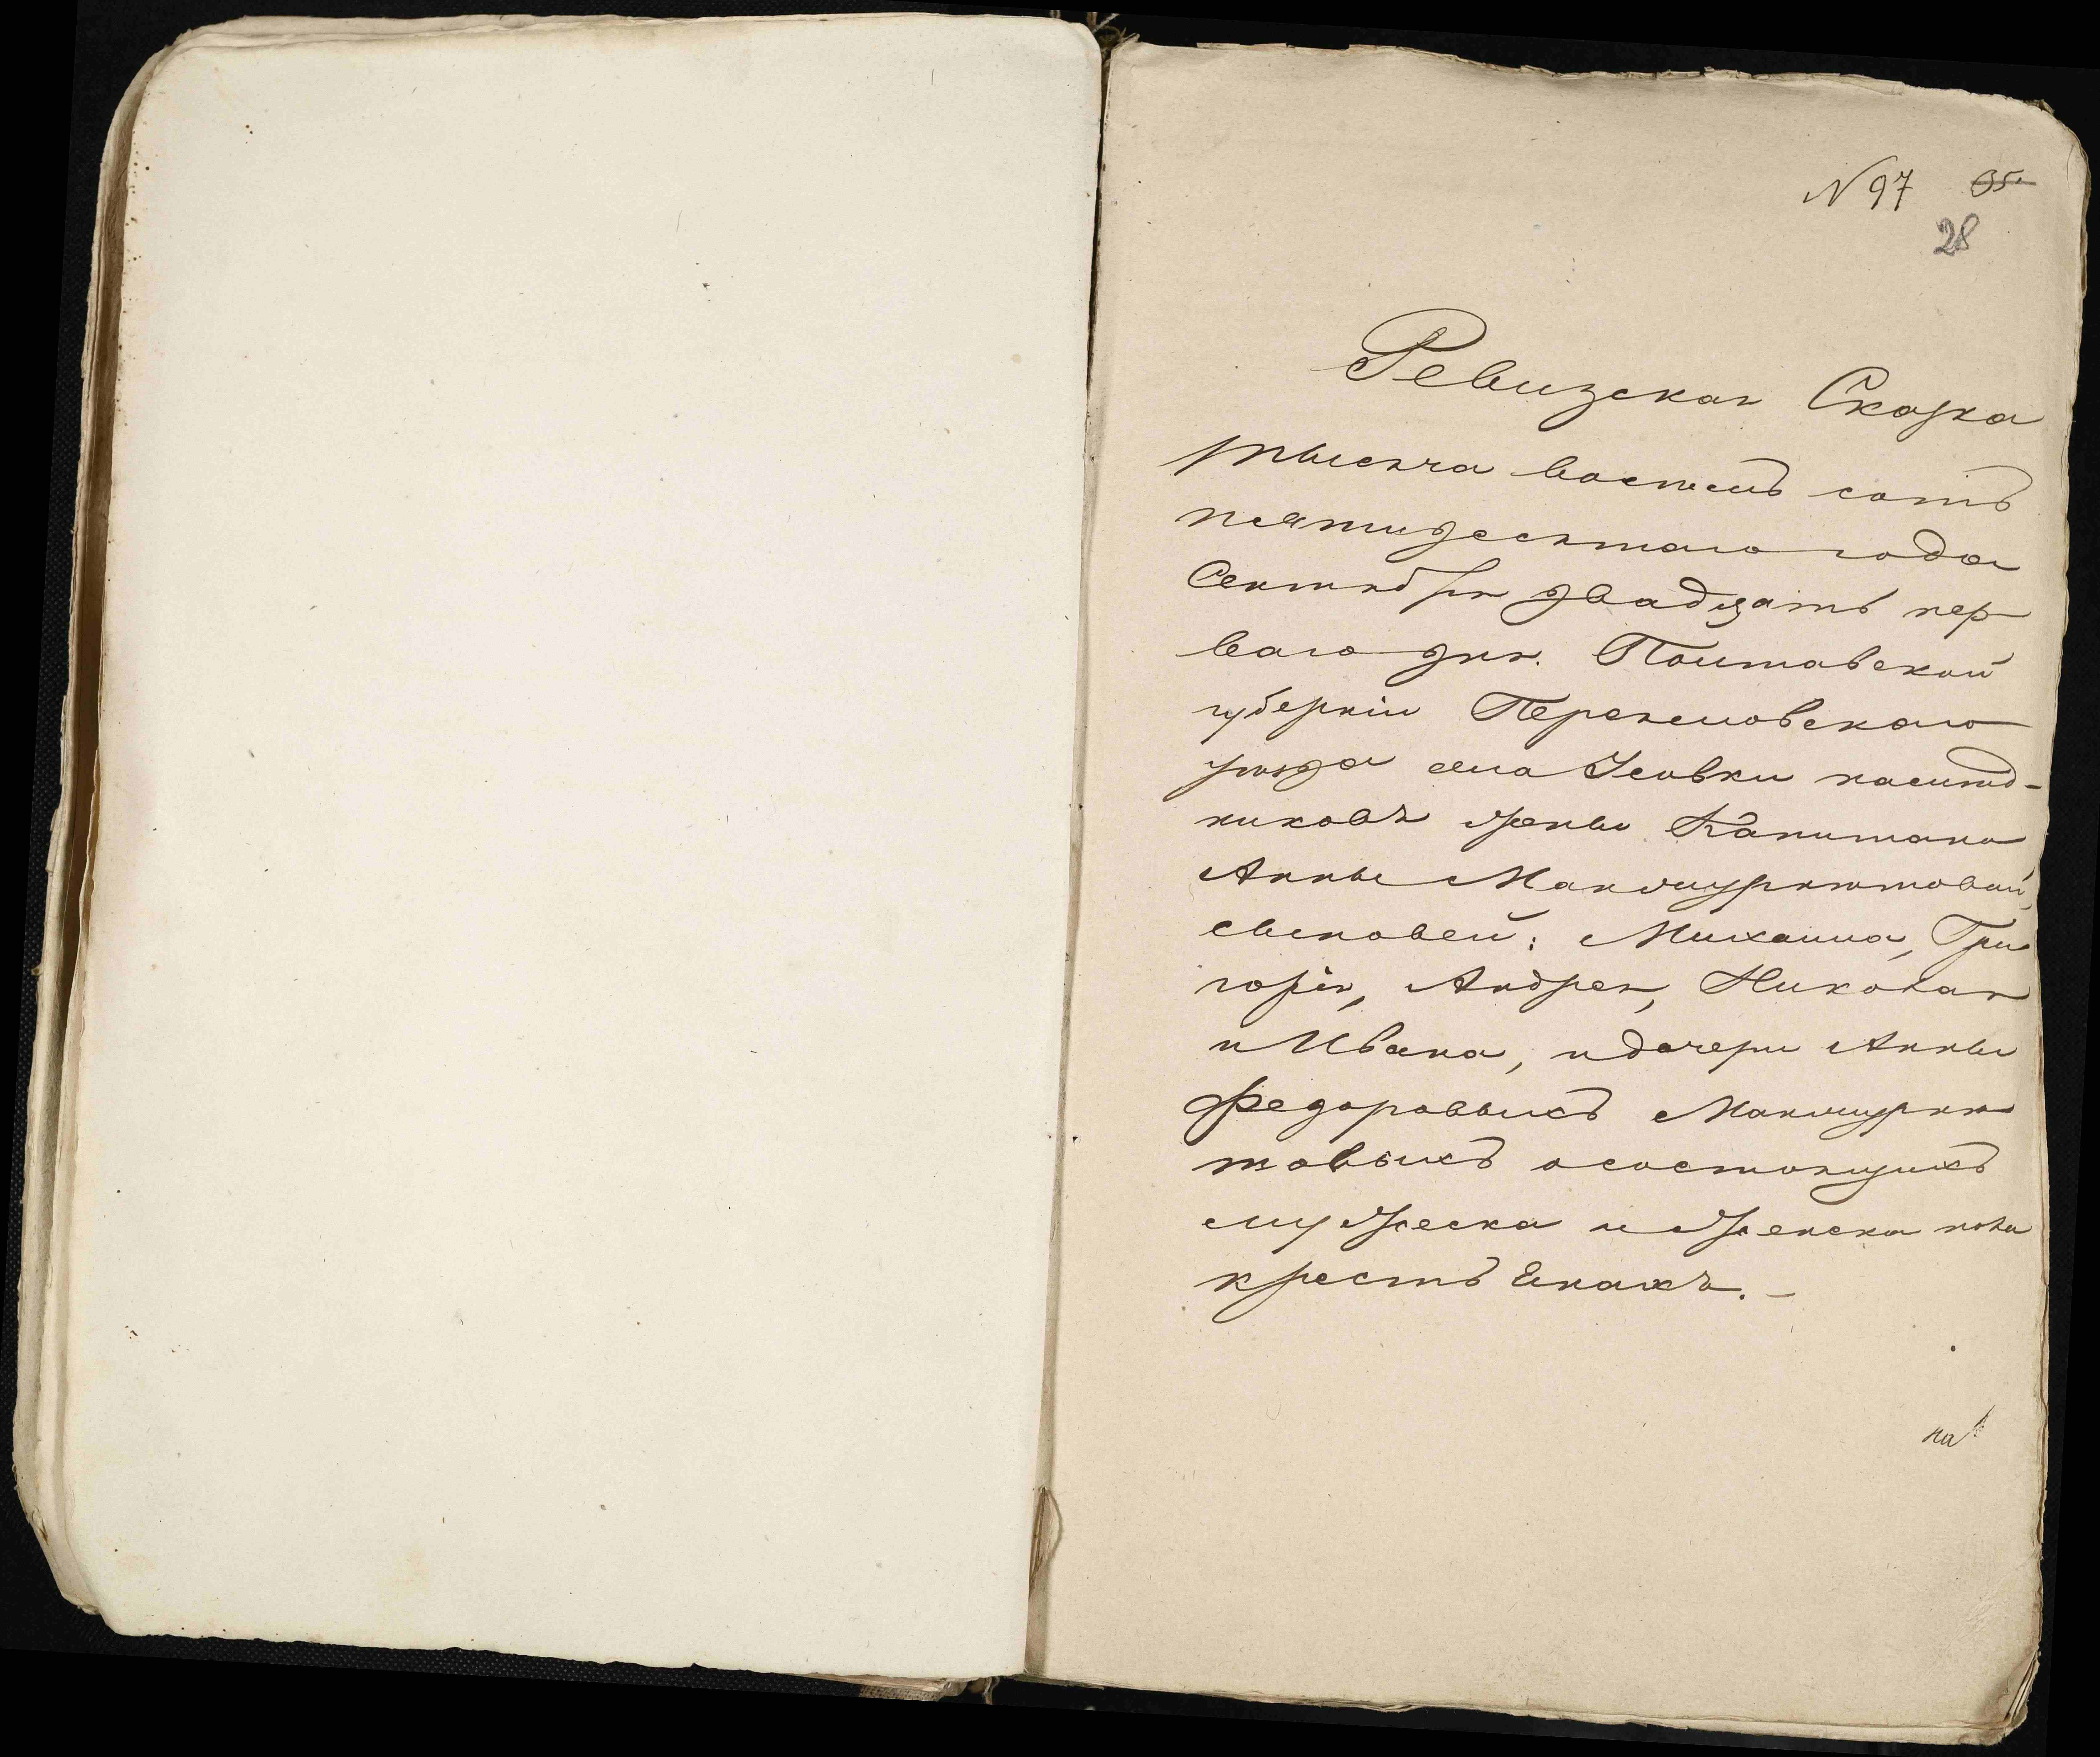 N 97 35
28
Ревизская Сказка
тысяча восемь сотъ
пятидесятаго года
Сентября двадцать пер
ваго дня. Полтавской
губерніи Переяславскаго
уѣзда села Усовки наслѣд-
никовъ жены Капитана
Анны
сыновей: Михаила, Гри
горія, Андрея, Николая
и Ивана, и дочери Анны
Федоровыхъ
товыхъ осостоящихъ
мужеска и женска пола
крестьянахъ. -
на